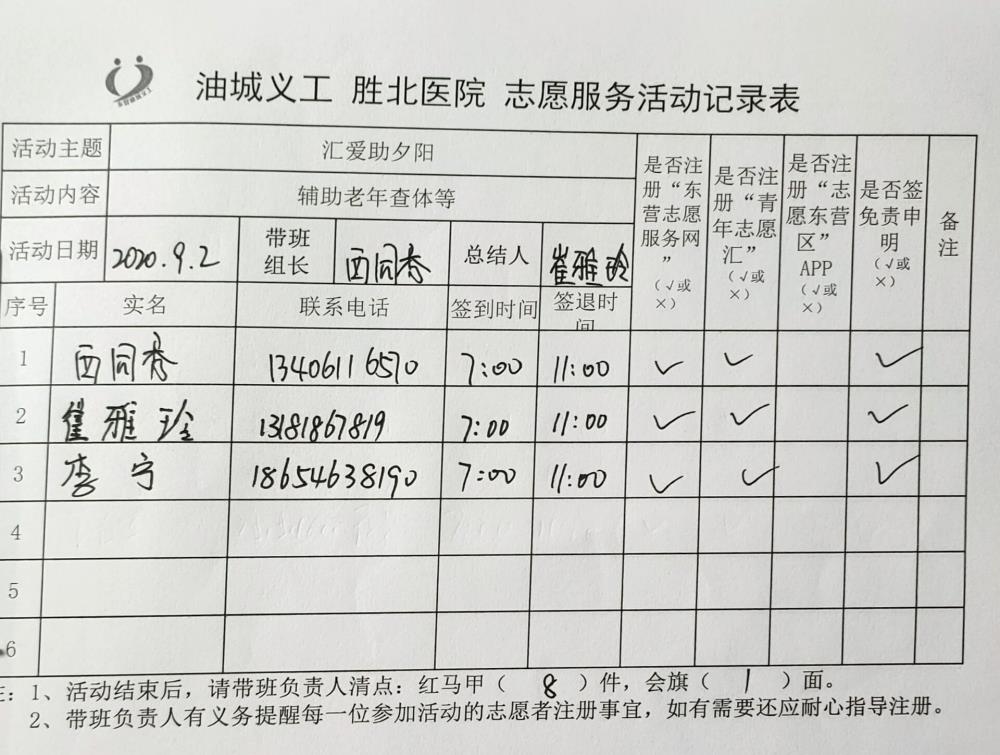 油城义工 胜北医院 志愿服务活动记录表
活动主题 汇爱助夕阳
活动内容 辅助老年查体等
活动日期 2020.9.2 带班组长 西同秀 总结人 崔雅玲
是否注册“东营志愿服务网”（√或×） 是否注册“青年志愿汇”（√或×） 是否注册“志愿东营区”APP（√或×） 是否签免责申明（√或×） 备注
序号 实名 联系电话 签到时间 签退时间
1 西同秀 13406116570 7:00 11:00 ✓ ✓ ✓
2 崔雅玲 13181867819 7:00 11:00 ✓ ✓ ✓
3 李宁 18654638190 7:00 11:00 ✓ ✓ ✓
4
5
6
注：1、活动结束后，请带班负责人清点：红马甲（ 8 ）件，会旗（ 1 ）面。
2、带班负责人有义务提醒每一位参加活动的志愿者注册事宜，如有需要还应耐心指导注册。